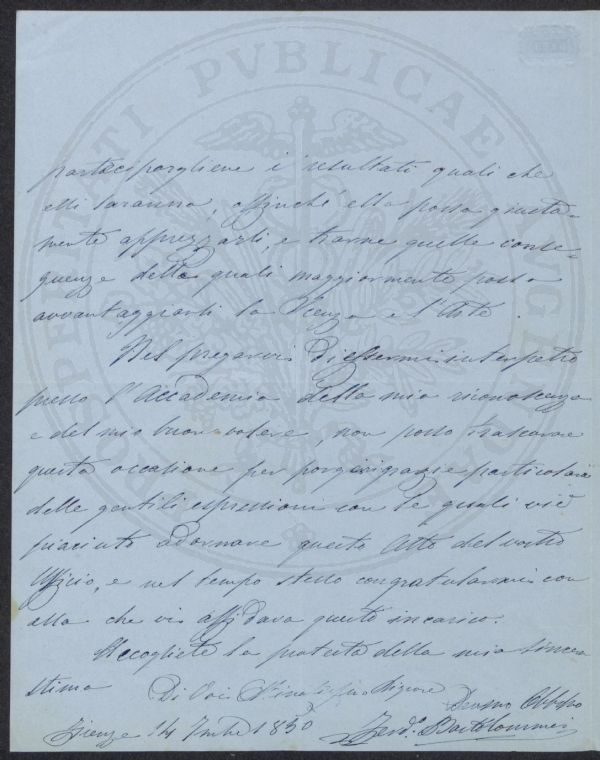 PROSPERITATI PVBLICAE AVGENDAE
partecipargliene i resultati quali che
essi saranno, affinchè ella possa giusta-
mente apprezzarli, e trarne quelle conse-
guenze delle quali maggiormente possa
avvantaggiarsi la Scienza e l'Arte.
Nel pregarvi di essermi interpetre
presso l'Accademia della mia riconoscenza
e del mio buon volere, non posso trascurare
questa occasione per porgervi grazie particolari
delle gentili espressioni con le quali vi è
piaciuto adornare questo Atto del vostro
Ufficio, e nel tempo stesso congratularmi con
essa che vi affidava questo incarico.
Accogliete la protesta della mia sincera
stima
Di Voi Signore
Devmo Obbmo
Firenze 14 1850
Ferd. Bartolommei